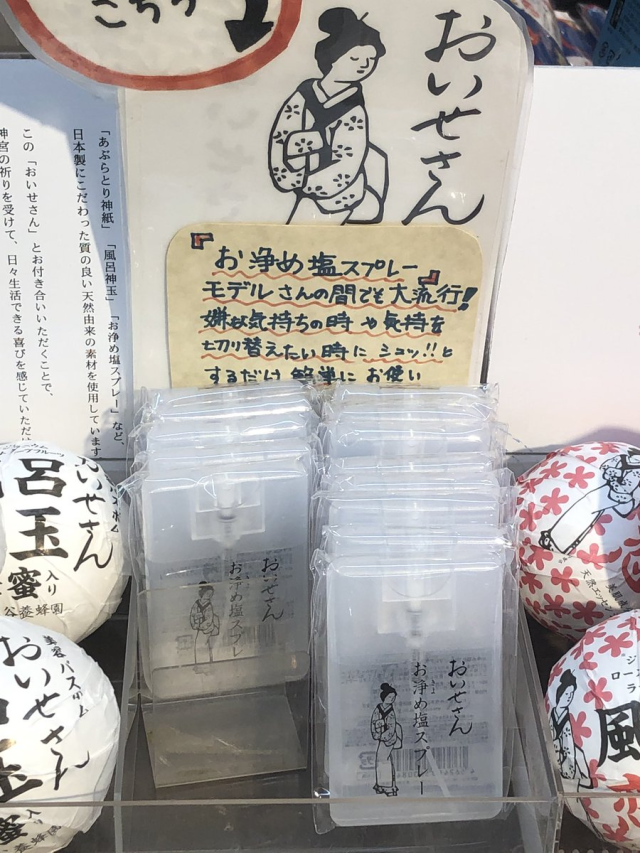 こちら
おいせさん
「あぶらとり神紙」「風呂神玉」「お浄め塩スプレー」など、
日本製にこだわった質の良い天然由来の素材を使用しています
この「おいせさん」とお付き合いいただくことで、
神宮の祈りを受けて、日々生活できる喜びを感じていただけ
お浄め塩スプレー
モデルさんの間でも大流行!
嫌な気持ちの時や気持を
切り替えたい時にシュッ!!と
するだけ 簡単に お使い
おいせさん
お浄め塩スプレー
おいせさん
お浄め塩スプレー
おいせさん
呂玉
蜜入り
養蜂園
美容バスボム
おいせさん
玉
蜜入り
風